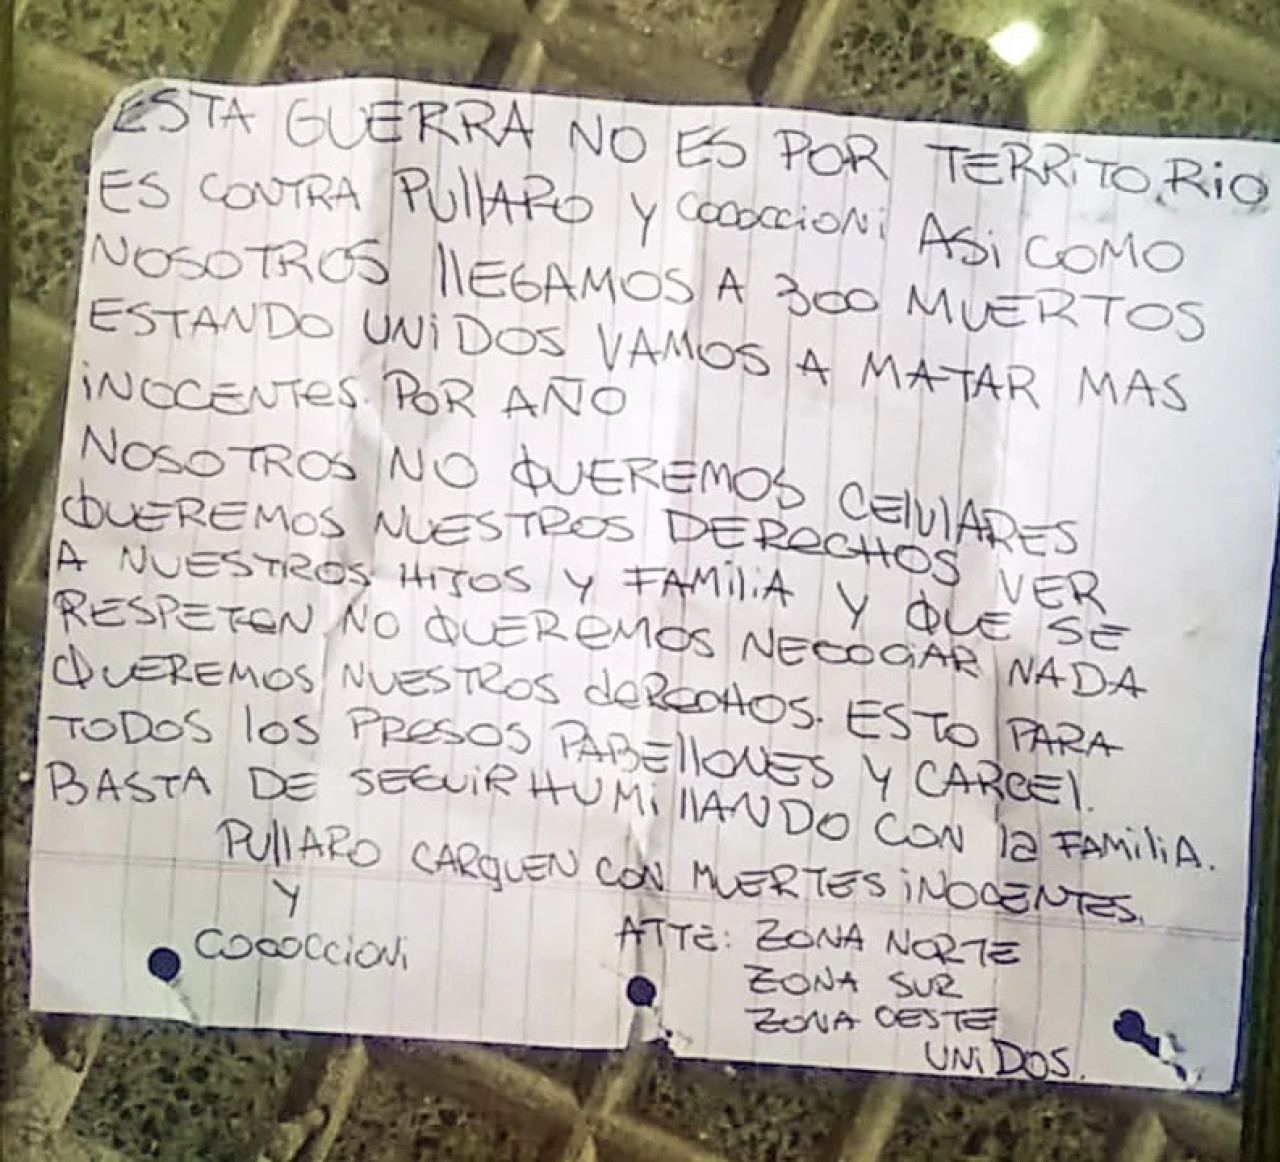 ESTA GUERRA NO ES POR TERRITORIO
ES CONTRA PUllARO Y COCOCCIONi ASi COMO
NOSOTROS llEGAMOS A 300 MUERTOS
ESTANDO UNiDOS VAMOS A MATAR MAS
iNOCENTES. POR AÑO
NOSOTROS NO QUEREMOS CElUlARES
QUEREMOS NUESTROS DERECHOS VER
A NUESTROS HIJOS Y FAMiliA Y QUE SE
RESPETEN NO QUEREMOS NECOCiAR NADA
QUEREMOS NUESTROS dERECHOS. ESTO PARA
TODOS lOS PRESOS PABEllONES Y CARCEl.
BASTA DE SEGUiR HUMillANDO CON la FAMiliA.
PUllARO CARGUEN CON MUERTES iNOCENTES.
Y
COCOCCIONi
ATTE: ZONA NORTE
ZONA SUR
ZONA OESTE
UNiDOS.